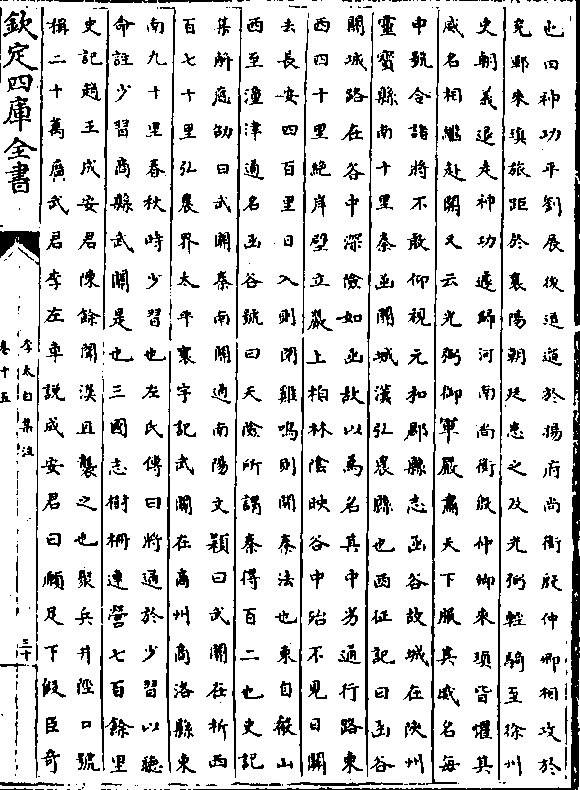 也田神功平劉展後逗遛於揚府尚衡殷仲卿相攻於
兖鄆來瑱旅距於襄陽朝廷患之及光弼輕騎至徐州
史朝義退走神功遽歸河南尚衡殷仲卿來瑱皆懼其
威名相繼赴闕又云光弼御軍嚴肅天下服其威名每
申號令諸將不敢仰視元和郡縣志函谷故城在陜州
靈寳縣南十里秦函關城漢弘農縣也西征記曰函谷
關城路在谷中深險如函故以為名其中劣通行路東
西四十里絶岸壁立巖上柏林陰映谷中殆不見日關
去長安四百里日入則閉雞鳴則開秦法也東自崤山
西至潼津通名函谷號曰天險所謂秦得百二也史記
集解應劭曰武關秦南關通南陽文穎曰武關在析西
百七十里弘農界太平寰宇記武關在商州商洛縣東
南九十里春秋時少習也左氏傳曰將通於少習以聽
命註少習商縣武關是也三國志樹柵連營七百餘里
史記趙王成安君陳餘聞漢且襲之也聚兵井陘口號
稱二十萬廣武君李左車說成安君曰願足下假臣奇
欽定四庫全書
李太白集注
卷十五
三十